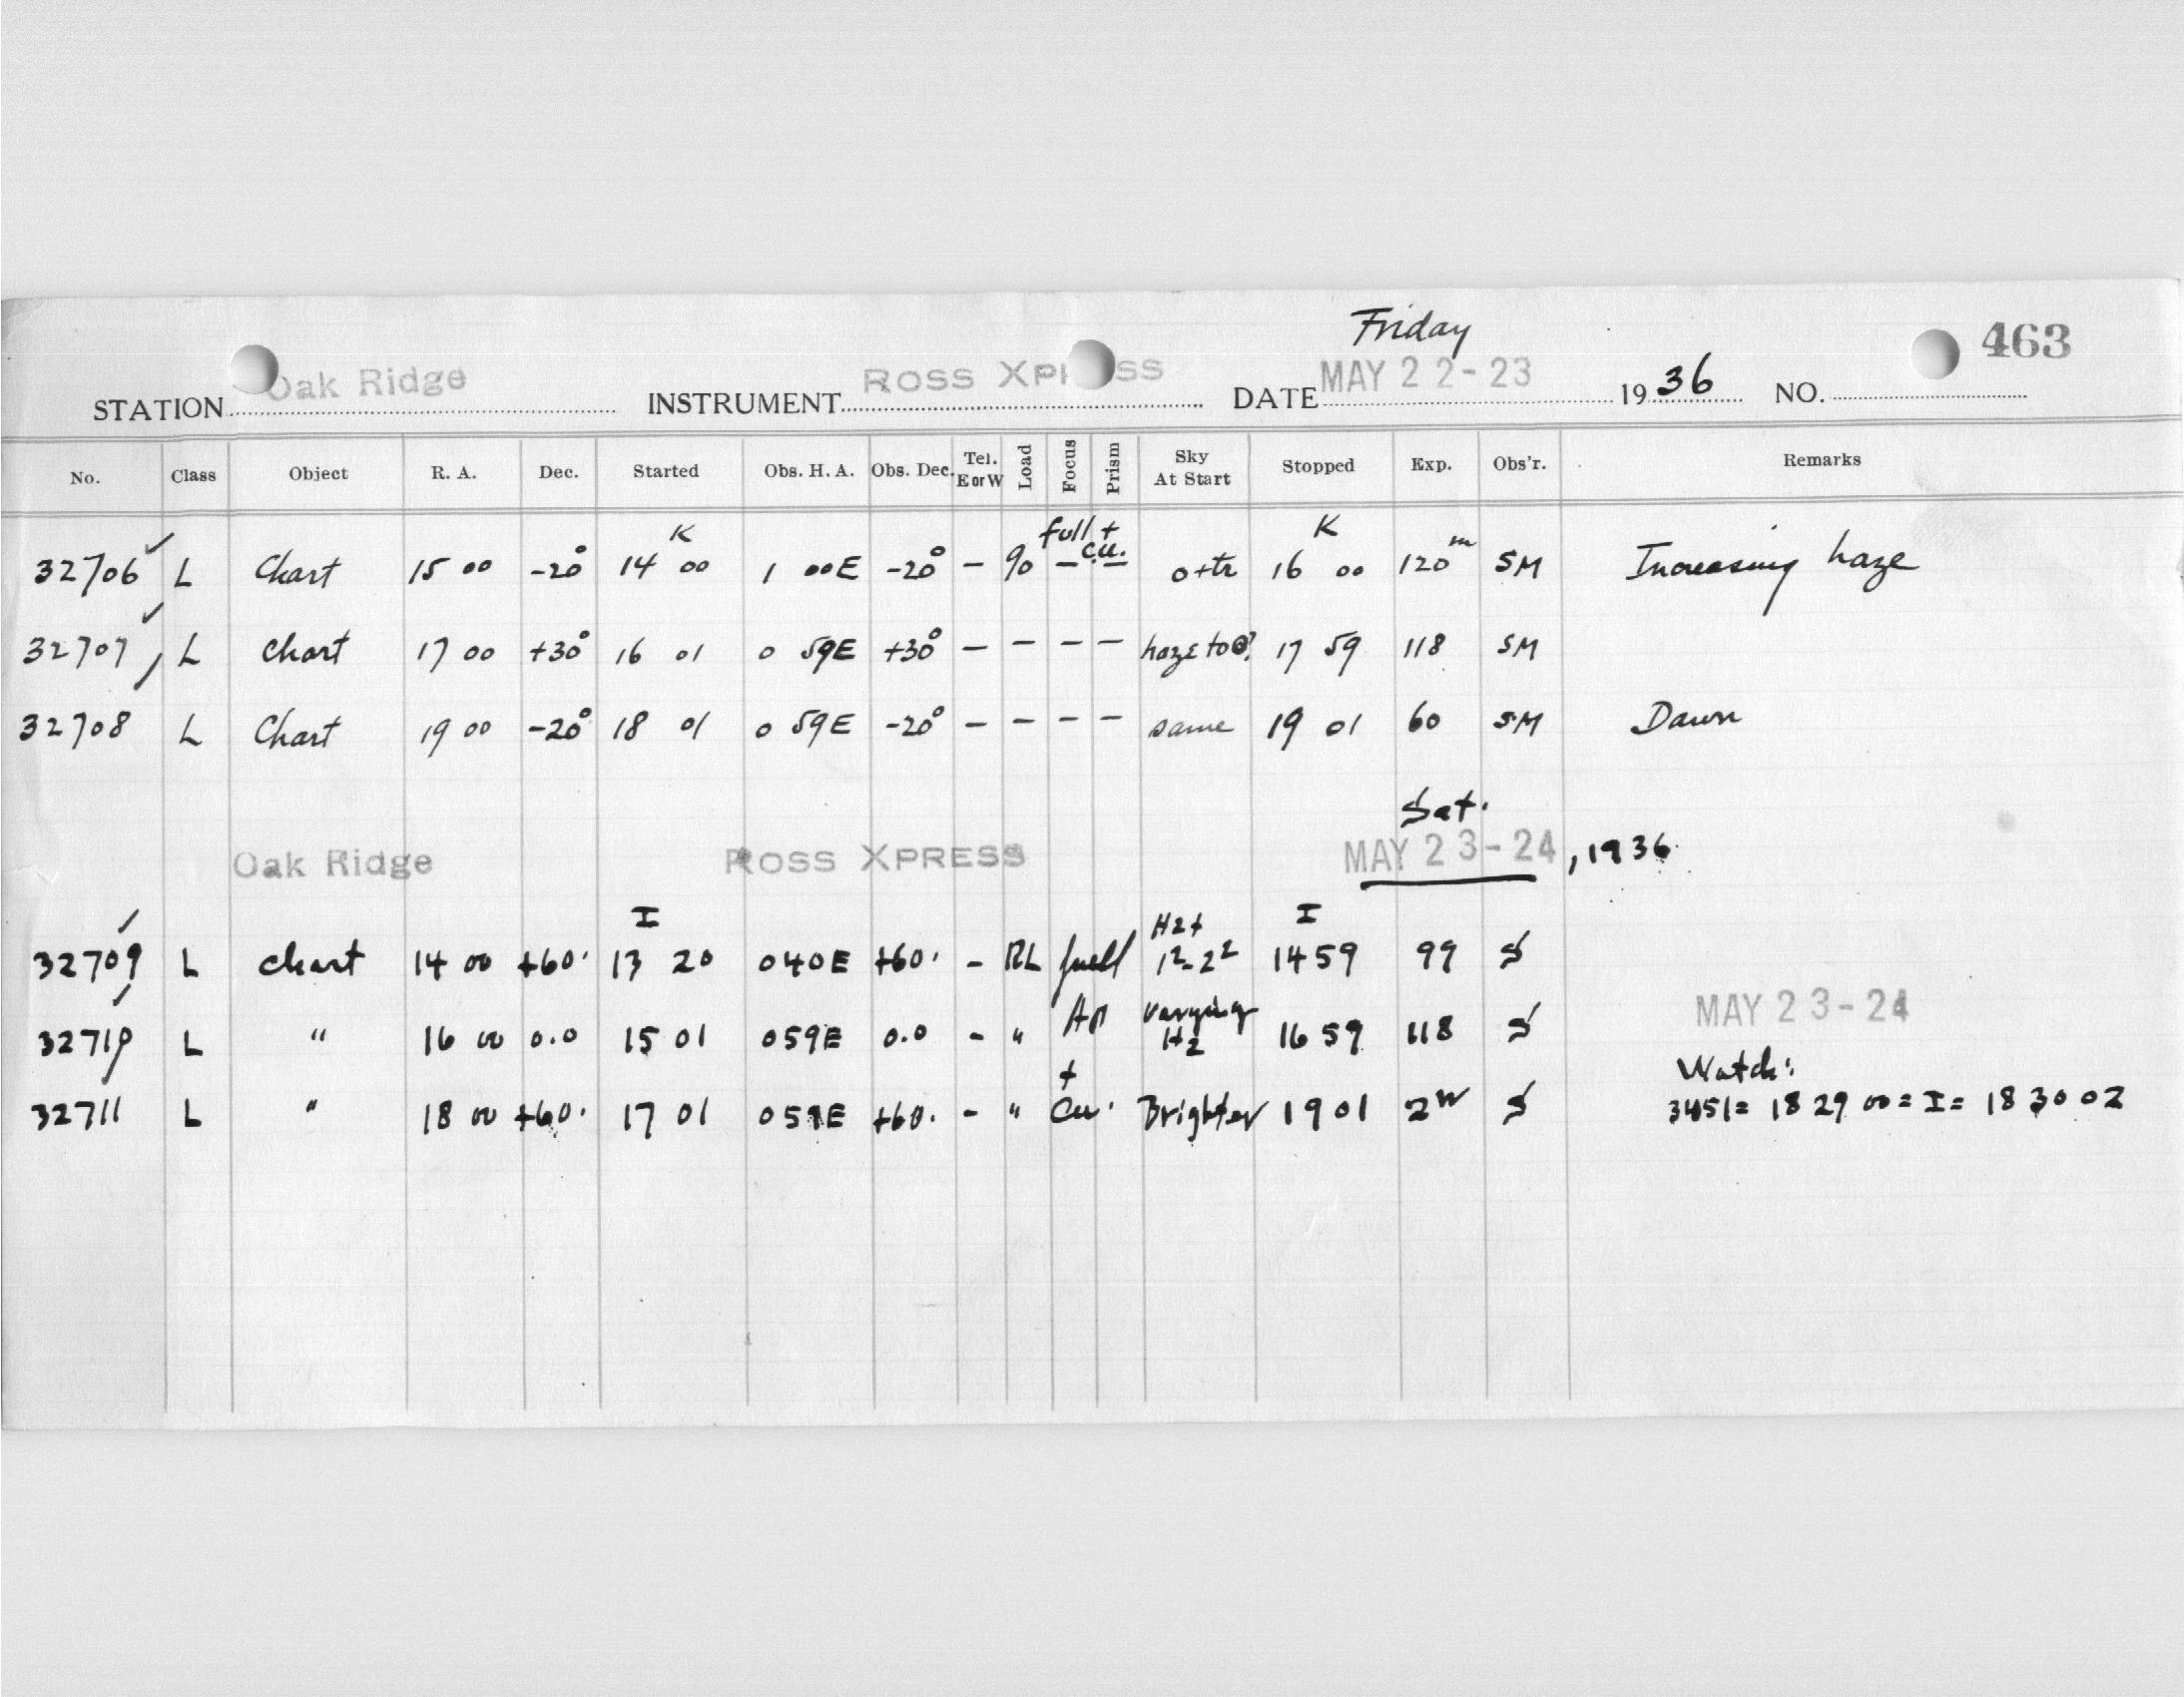 Friday
463
STATION Oak Ridge INSTRUMENT ROSS XPRESS DATE MAY 22-23 1936 NO.
No. Class Object R. A. Dec. Started Obs. H. A. Obs. Dec. Tel. E or W Load Focus Prism Sky At Start Stopped Exp. Obs'r. Remarks
K full + cu. K
32706 ✓ L Chart 15 00 -20° 14 00 1 00E -20° - 90 - - 0+tr 16 00 120m SM Increasing haze
32707 ✓ L Chart 17 00 +30° 16 01 0 59E +30° - - - - haze to 17 59 118 SM
32708 L Chart 19 00 -20° 18 01 0 59E -20° - - - - same 19 01 60 SM Dawn
Sat.
Oak Ridge ROSS XPRESS MAY 23-24, 1936
I Hz+ I
32709 ✓ L chart 14 00 +60. 13 20 0 40E +60. - RL full 1²-2² 14 59 99 S
MAY 23-24
32710 ✓ L " 16 00 0.0 15 01 0 59E 0.0 - " Ap varying Hz 16 59 118 S
Watch:
32711 L " 18 00 +60. 17 01 0 59E +60. - " + cu. Brighter 19 01 S 3451= 18 29 00 = I = 18 30 02